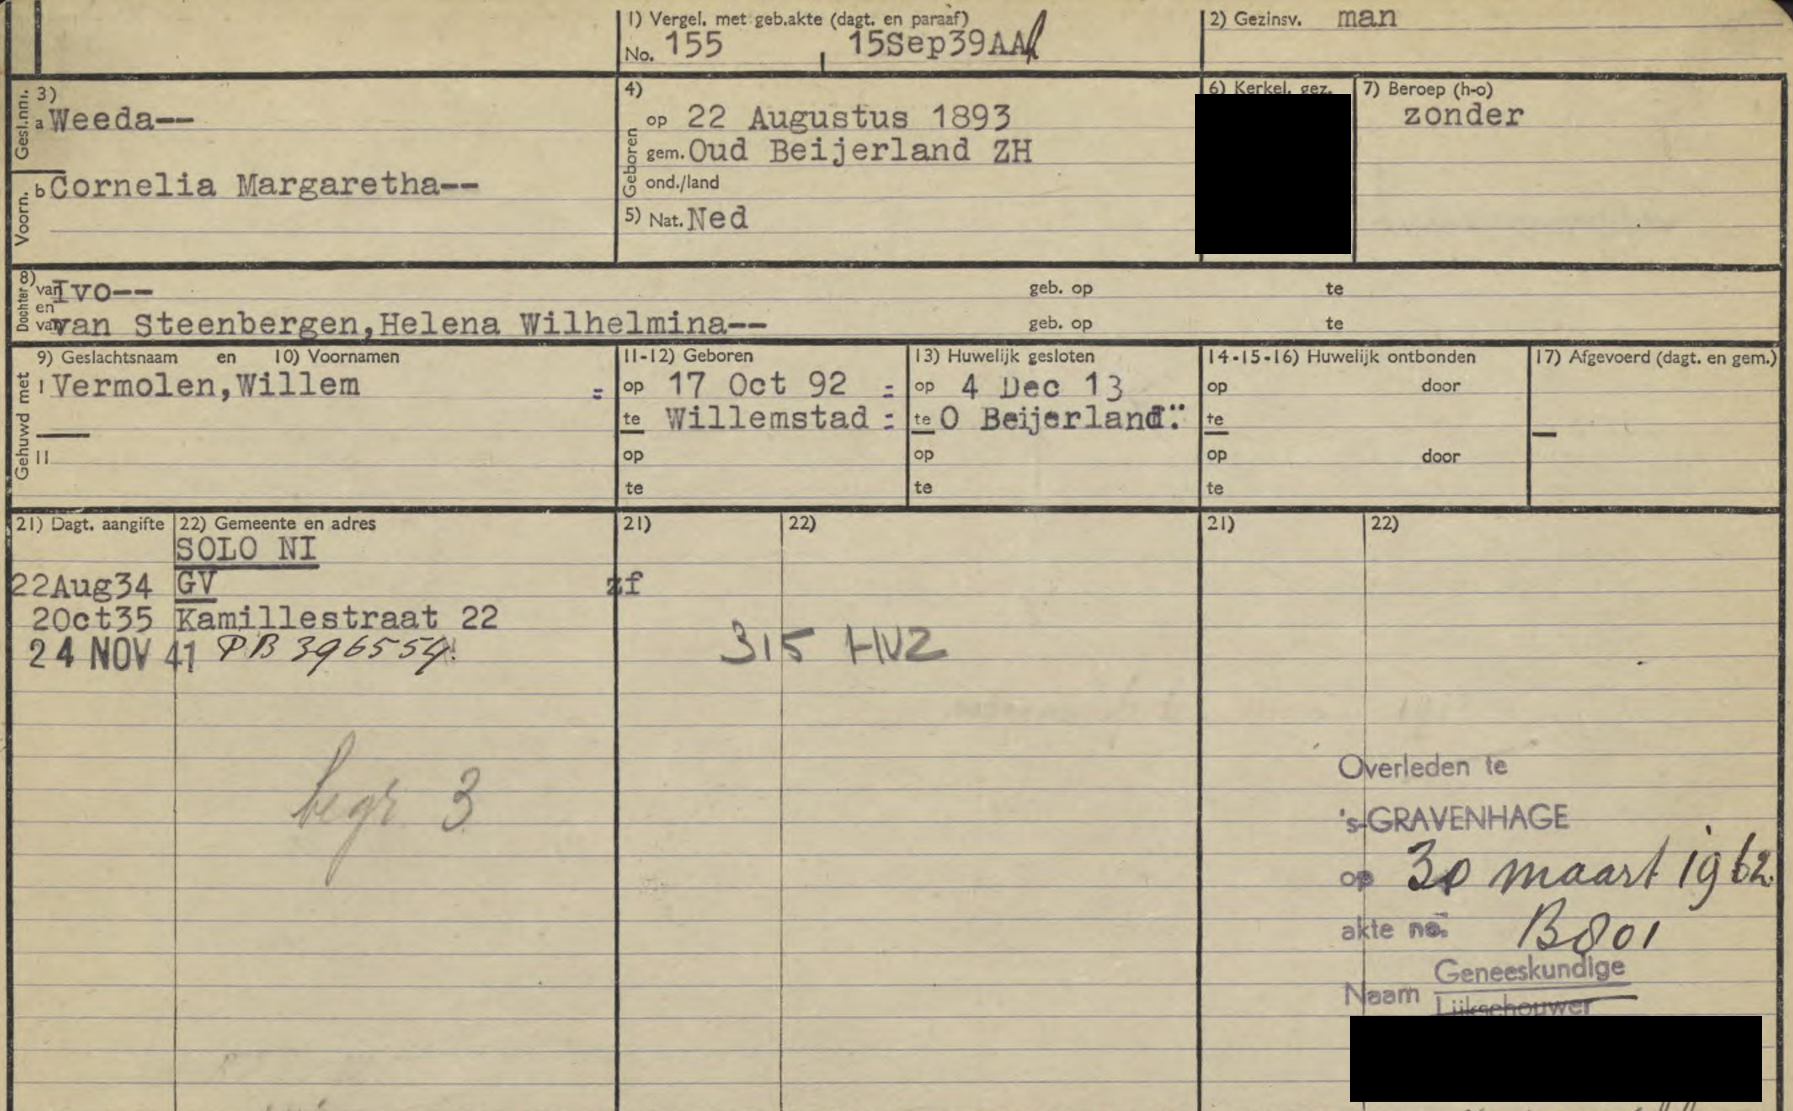 1) Vergel. met geb.akte (dagt. en paraaf)
No. 155 15Sep39AA
2) Gezinsv. man
Gesl.nm. 3)
a Weeda--
Voorn. b Cornelia Margaretha--
4)
Geboren op 22 Augustus 1893
gem. Oud Beijerland ZH
ond./land
5) Nat. Ned
6) Kerkel. gez.
7) Beroep (h-o)
zonder
Dochter 8) van Ivo-- geb. op te
en van van Steenbergen,Helena Wilhelmina-- geb. op te
Gehuwd met
9) Geslachtsnaam en 10) Voornamen
I Vermolen,Willem =
II
11-12) Geboren
op 17 Oct 92 =
te Willemstad =
op
te
13) Huwelijk gesloten
op 4 Dec 13
te O Beijerland
op
te
14-15-16) Huwelijk ontbonden
op door
te
op door
te
17) Afgevoerd (dagt. en gem.)
21) Dagt. aangifte 22) Gemeente en adres
21) 22)
21) 22)
SOLO NI
22Aug34 GV zf
2Oct35 Kamillestraat 22
24 NOV 41 PB 396554
315 HVZ
begr 3
Overleden te
's-GRAVENHAGE
op 30 maart 1962
akte no. B801
Naam Geneeskundige
Lijkschouwer